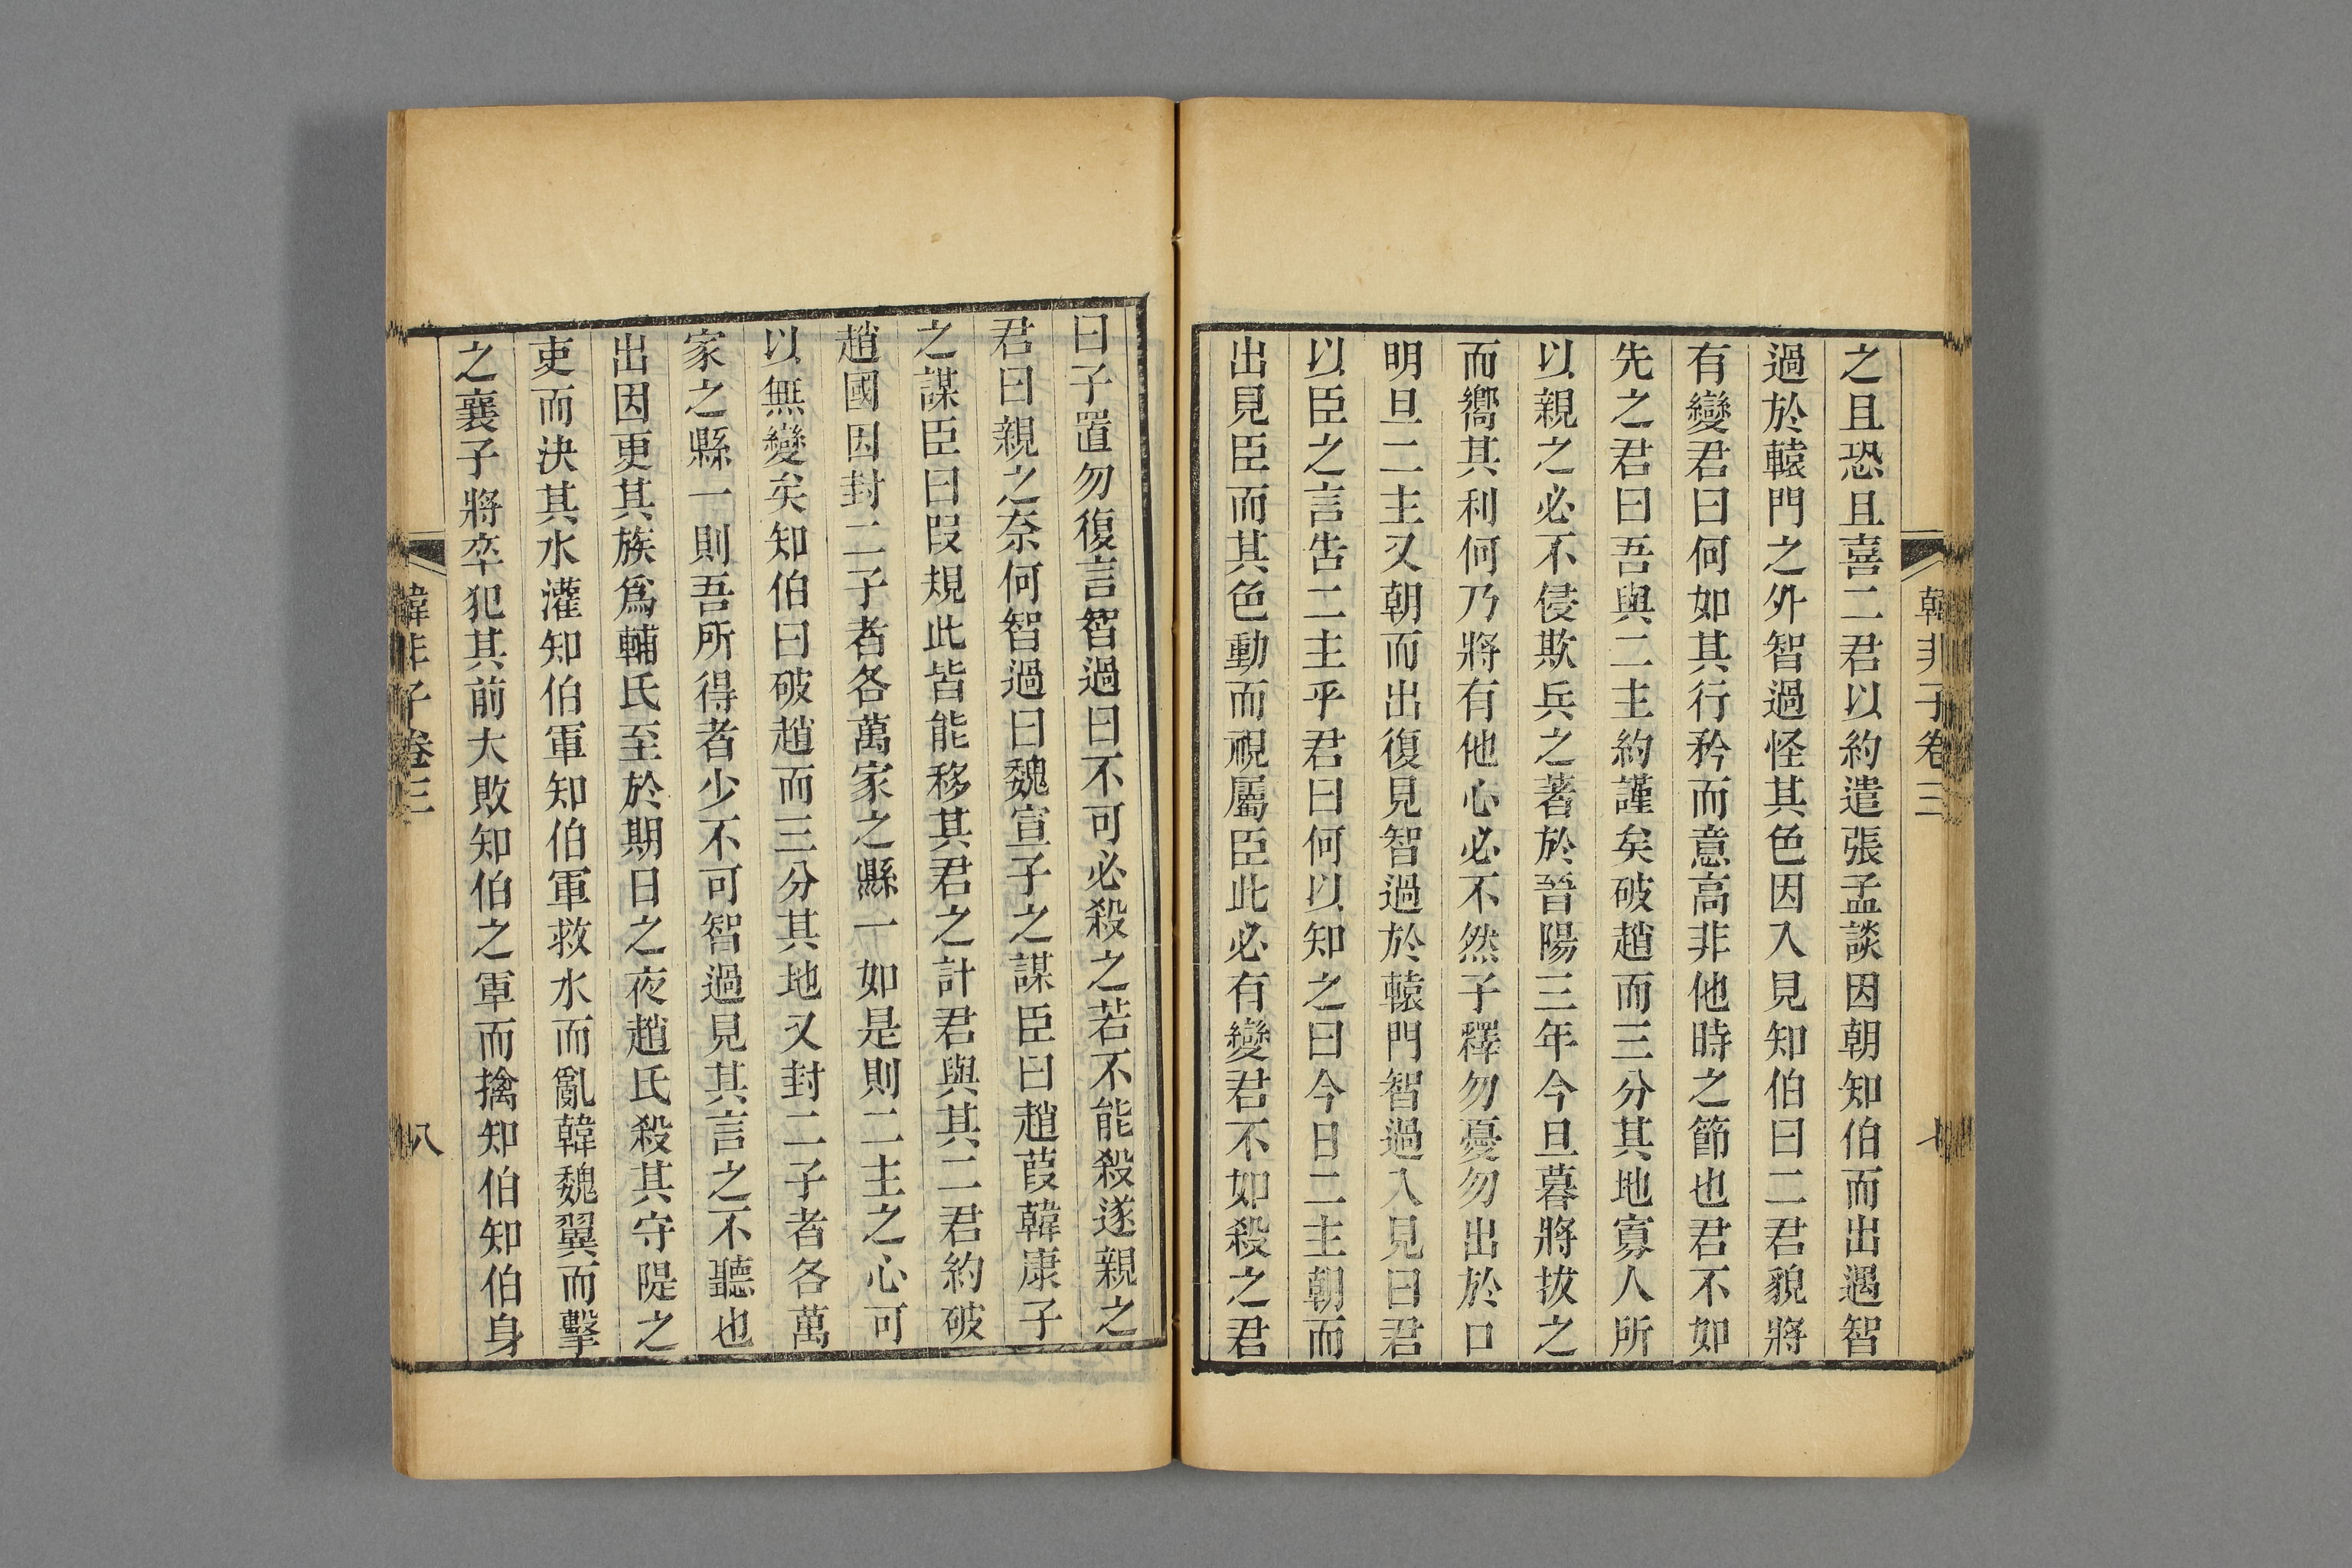 韓非子卷三
七
之且恐且喜二君以約遣張孟談因朝知伯而出遇智
過於轅門之外智過怪其色因入見知伯曰二君貌將
有變君曰何如其行矜而意高非他時之節也君不如
先之君曰吾與二主約謹矣破趙而三分其地寡人所
以親之必不侵欺兵之著於晉陽三年今旦暮將拔之
而嚮其利何乃將有他心必不然子釋勿憂勿出於口
明旦二主又朝而出復見智過於轅門智過入見曰君
以臣之言告二主乎君曰何以知之曰今日二主朝而
出見臣而其色動而視屬臣此必有變君不如殺之君
曰子置勿復言智過曰不可必殺之若不能殺遂親之
君曰親之奈何智過曰魏宣子之謀臣曰趙葭韓康子
之謀臣曰段規此皆能移其君之計君與其二君約破
趙國因封二子者各萬家之縣一如是則二主之心可
以無變矣知伯曰破趙而三分其地又封二子者各萬
家之縣一則吾所得者少不可智過見其言之不聽也
出因更其族爲輔氏至於期日之夜趙氏殺其守隄之
吏而決其水灌知伯軍知伯軍救水而亂韓魏翼而擊
之襄子將卒犯其前大敗知伯之軍而擒知伯知伯身
韓非子卷三
八